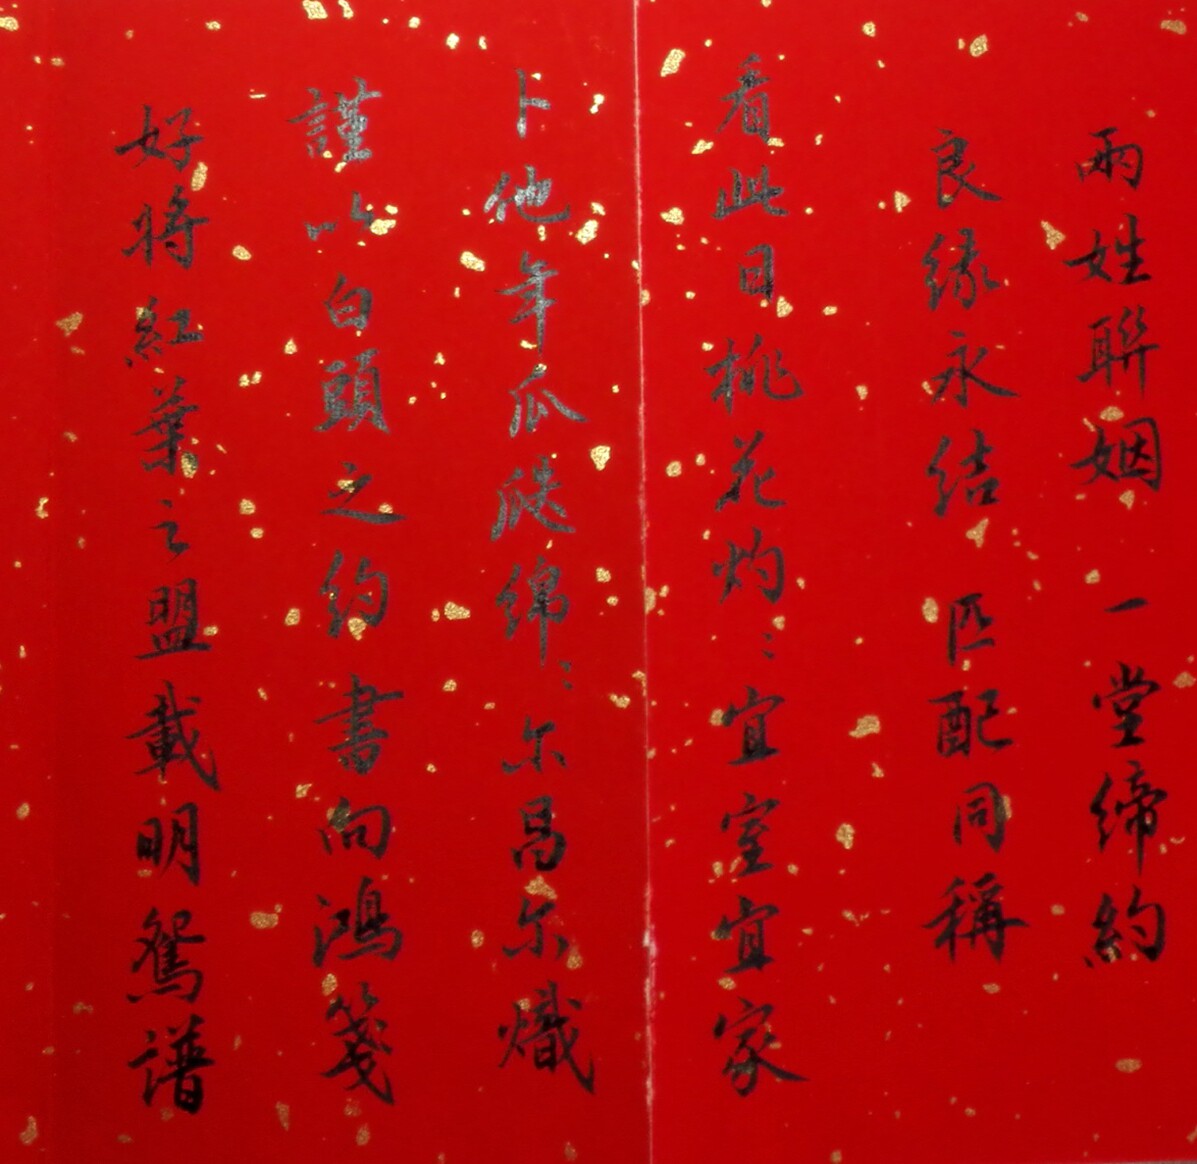 兩姓聯姻 一堂締約
良缘永结 匹配同稱
看此日桃花灼〻宜室宜家
卜他年瓜瓞綿〻尔昌尔熾
謹以白頭之約書向鴻箋
好將紅葉之盟載明鴛譜